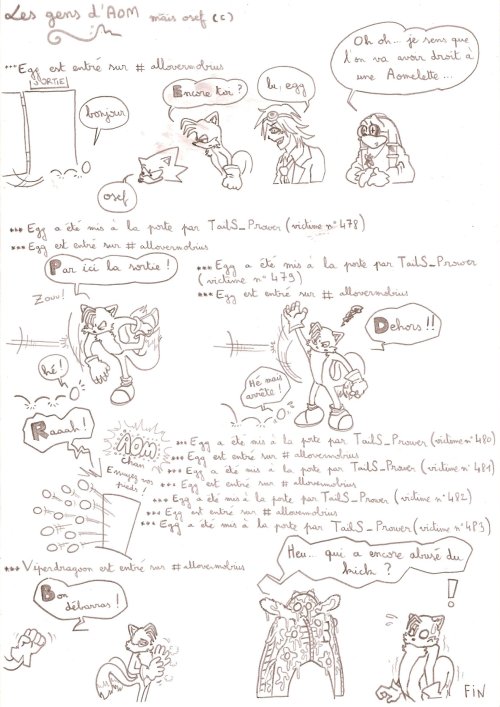 Les gens d'AOM mais osef (c)
***Egg est entré sur # allovermobius
SORTIE
bonjour
Encore toi ?
lu, egg
Oh oh... je sens que
l'on va avoir droit à
une Aomelette...
osef
*** Egg a été mis à la porte par TailS_Prower (victime n°478)
*** Egg est entré sur # allovermobius
Par ici la sortie !
Zouu !
hé !
*** Egg a été mis à la porte par TailS_Prower
(victime n° 479)
*** Egg est entré sur # allovermobius
Dehors !!
Hé mais
arrête !
Raaah !
AOM
chan
Essuyez vos
pieds !
*** Egg a été mis à la porte par TailS_Prower (victime n°480)
*** Egg est entré sur # allovermobius
*** Egg a été mis à la porte par TailS_Prower (victime n°481)
*** Egg est entré sur # allovermobius
*** Egg a été mis à la porte par TailS_Prower (victime n° 482)
*** Egg est entré sur # allovermobius
*** Egg a été mis à la porte par TailS_Prower (victime n°483)
*** Vyperdragoon est entré sur # allovermobius
Bon
débarras !
Heu... qui a encore abusé du
kick ?
!
FIN